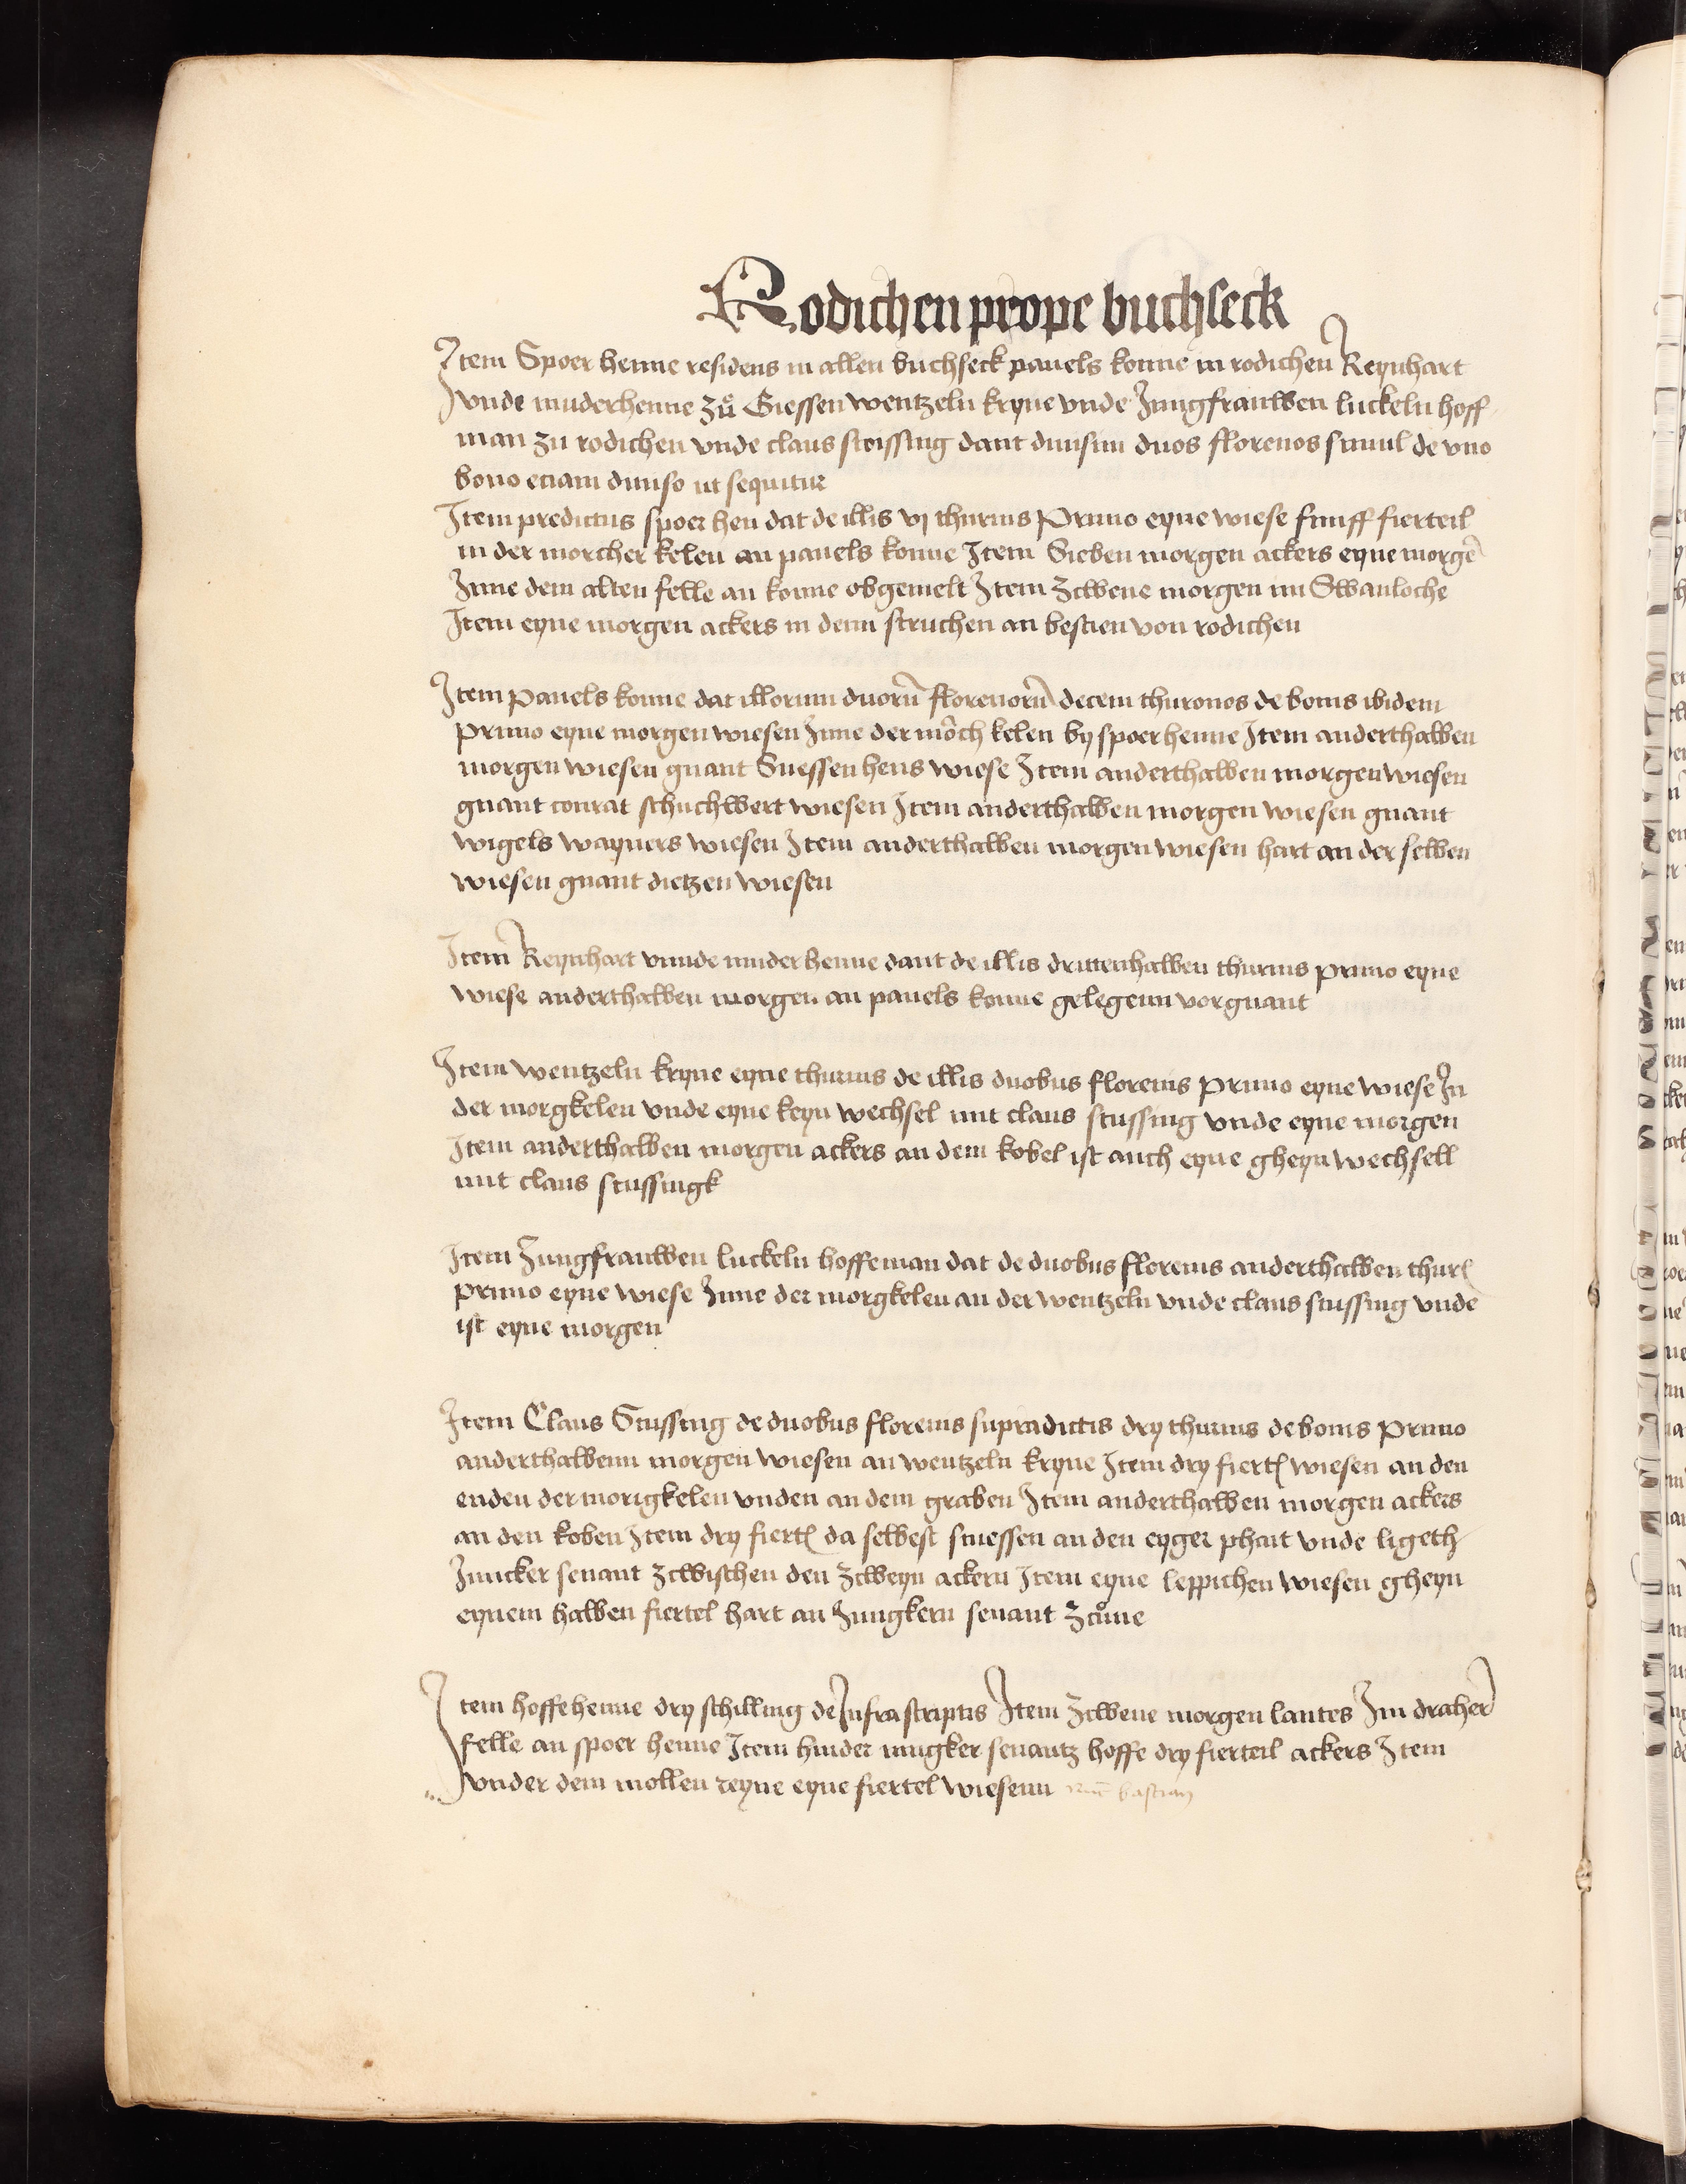 Rodichen prope buchseck
Item Spoer henne residens in allen buchseck pauels konne in rodichen Reynhart
vnde muderhenne zů Giessen wentzeln kryne vnde Jungfrauwen luckeln hoff
man zu rodichen vnde claus stoissing dant diuisim duos florenos simul de vno
bono etiam diuiso ut sequitur
Item predictus spoer hen dat de illis vj thurnis Primo eyne wiese funff fierteil
in der morcher kelen an pauels konne Item Sieben morgen ackers eyne morgē
Inne dem alten felle an konne obgemelt Item zcwene morgen im Swanloche
Item eyne morgen ackers in denn struchen an bestien von rodichen
Item Pauels konne dat illorum duorū florenorū decem thuronos de bonis ibidem
primo eyne morgen wiesen Inne der mōch kelen by spoerhenne Item anderthalben
morgen wiesen gnant Suessen hens wiese Item anderthalben morgen wiesen
gnant conrat schuchwert wiesen Item anderthalben morgen wiesen gnant
wigels wayners wiesen Item anderthalben morgen wiesen hart an der selben
wiesen gnant dietzen wiesen
Item Reynhart vnnde muder henne dant de illis drittenhalben thurnis primo eyne
wiese anderthalben morgen an pauels konne gelegenn vorgnant
Item wentzeln kryne eyne thurnis de illis duobus florenis primo eyne wiese In
der morgkelen vnde eyne keyn wechsel mit claus stussing vnde eyne morgen
Item anderthalben morgen ackers an dem kobel ist auch eyne gheyn wechsell
mit claus stussingk
Item Jungfrauwen luckeln hoffeman dat de duobus florenis anderthalben thur
primo eyne wiese Inne der morgkelen an der wentzeln vnde claus stussing vnde
ist eyne morgen
Item Claus Stussing de duobus florenis supradictis dry thurnis de bonis Primo
anderthalbenn morgen wiesen an wentzeln kryne Item dry fiert wiesen an den
enden der morigkelen vnden an dem graben Item anderthalben morgen ackers
an den koben Item dry fiert da selbest stuessen an den eyger phait vnde ligeth
Juncker senant zcwischen den zcweyn ackern Item eyne leppichen wiesen gheyn
eynem halben fiertel hart an Jungkern senant zcůne
Item hoffehenne dry schilling de Infrascriptis Item zcwene morgen lantes Im draher
felle an spoer henne Item hinder iungker senantz hoffe dry fierteil ackers Item
vnder dem mollen reyne eyne fiertel wiesenn nūc bastian